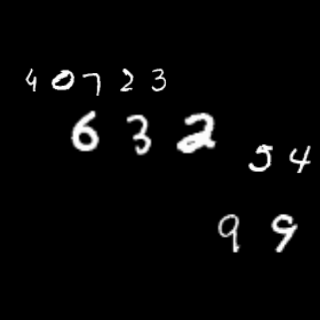 40723
632
54
99